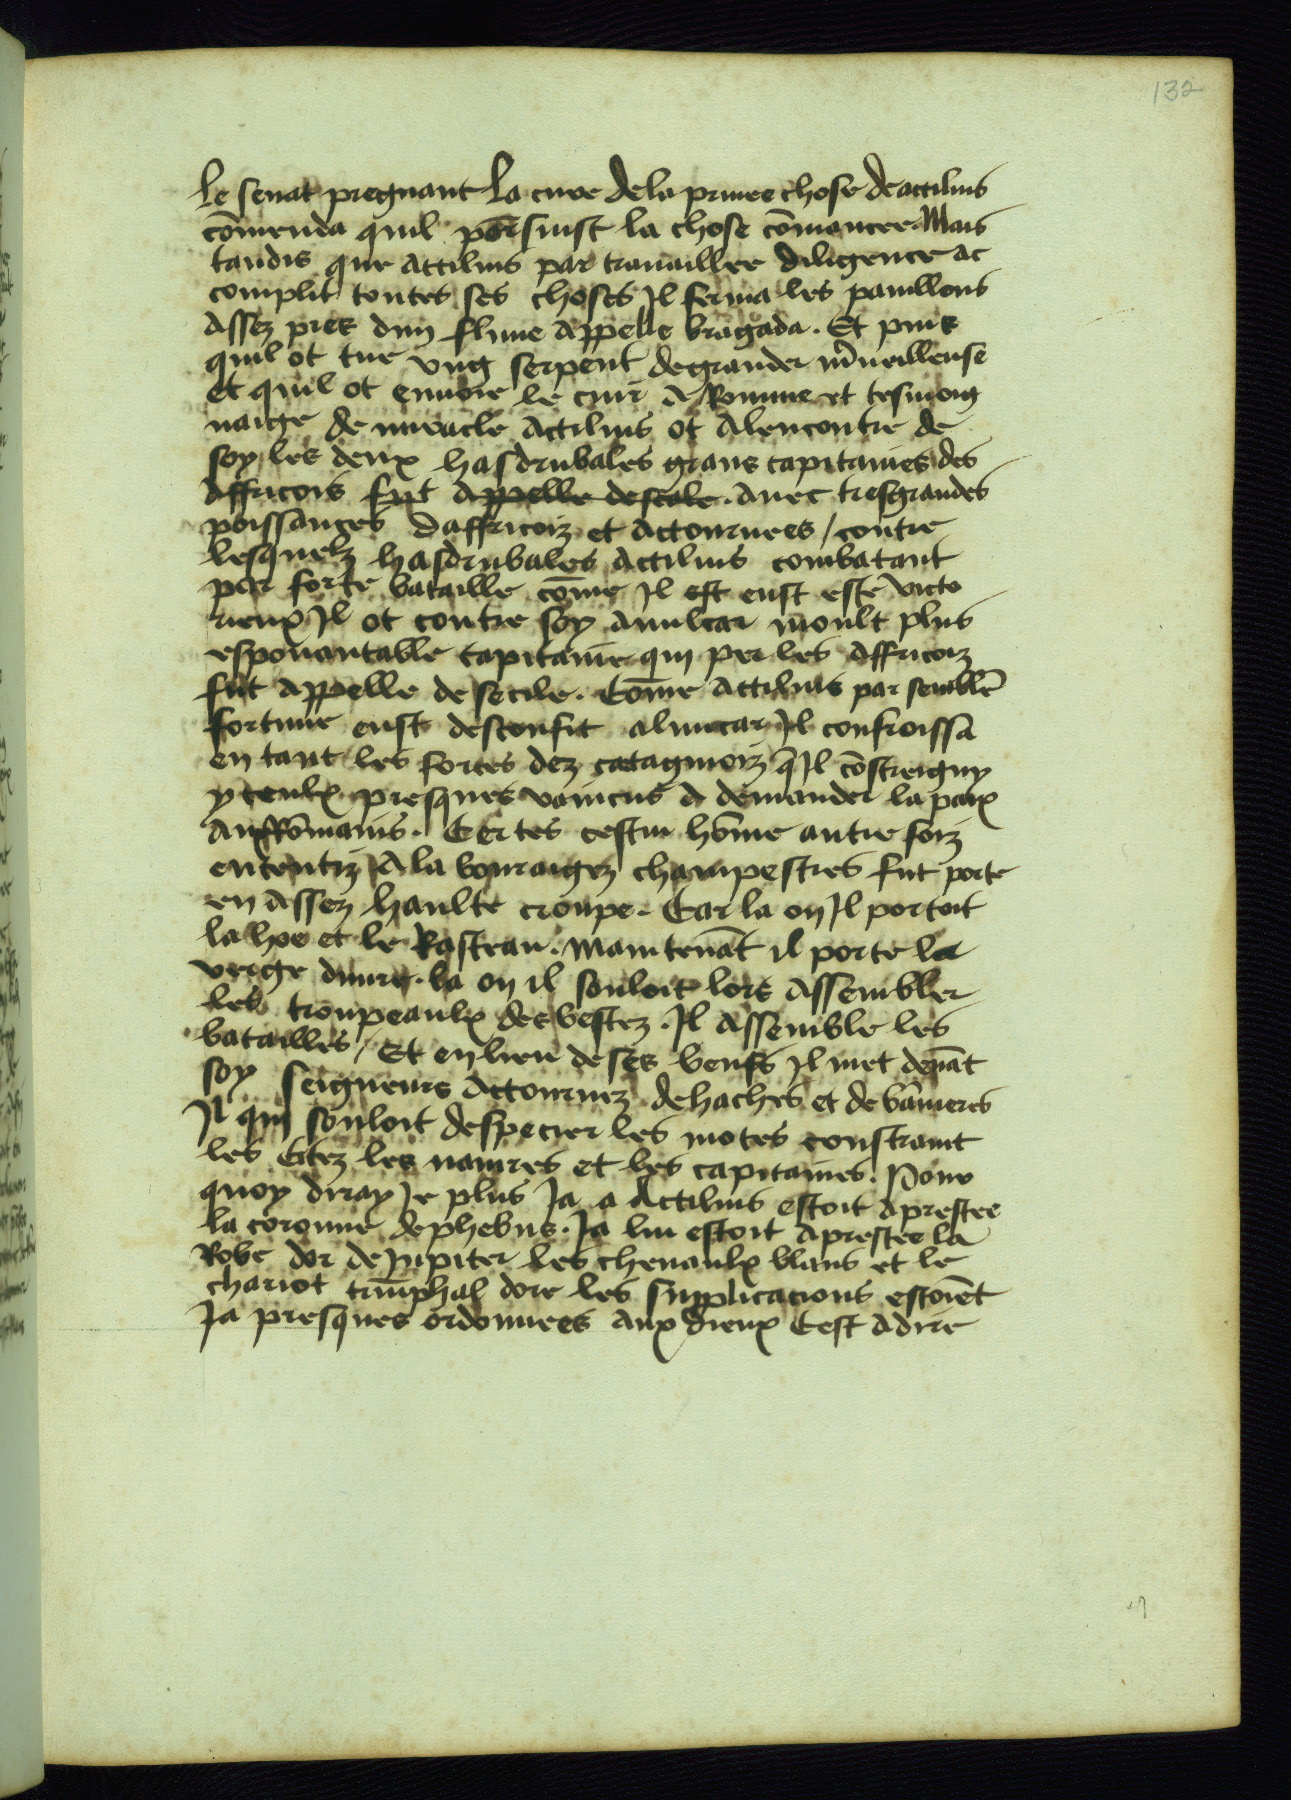 132
Le senat pregnant La cure de la privee chose de actilius
cōmenda quil poursuist la chose cōmancee. Mais
tandis que Attilius par travaillee diligence ac
complit toutes ses choses Il ferma les pauillons
Assez pres dun flume Appelle bragada. Et puis
quil ot tue vng serpent de grandeur m̄ueilleuse
et quil ot enuoie le cuir A Romme et tesmoig
naige de miracle Actilius ot Alencontre de
soy les deux hasdrubales grans capitaines des
Affricois fut Appelle de secile. Auec tresgrandes
poissances daffricoiz et Actournees / contre
lesquelz hasdrubales Actilius combatant
par forte bataille cōme Il eft eust este victo
rieux Il ot contre soy Amilcar moult plus
espouantable capitaine qui per les Affricoiz
fut Appelle de secile. Cōme Attilius par semblē
fortune eust desconfit almicar Il confroissa
en tant les forces dez catagiuoiz q̄ Il cōstreigny
yceulx presques vaincus A demander la paix
Aux Rōmains. Certes cestui hōme autre foiz
ententiz A la bouraigez champestres fut porte
en Assez haulte croupe. Car la ou Il portoit
la hoe et le Rasteau. Maintenāt il porte la
verge diuire. la ou il souloit lors Assembler
les troupeaulx des bestez. Il Assemble les
batailles / Et en lieu de ses beufs Il met deuāt
soy seigneurs Actournez de haches et de bānieres
Il qui souloit despecier les motes constraint
les Citez les nauires et les capitaines. Pour
quoy diray Je plus Ja a Actilius estoit Aprestee
la coronne de phebus. Ja lui estoit Aprestee la
Robe dor de Jupiter les cheuaulx blans et le
chariot triūphal dore les supplicacions estoiēt
Ja presques ordonnees Aux dieux Cest Adire